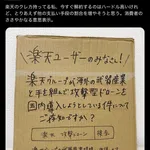 楽天のクレカ持ってる私、今すぐ解約するのはハードル高いけれ
ど、とりあえず他の支払い手段の割合を増やそうと思う。消費者の
ささやかな意思表示。
楽天ユーザーのみなさん!
楽天グループが海外の武器産業
と手を組んで攻撃型ドローンを
国内導入しようとしている件について
ご存知ですか?
楽天 攻撃ドローン 検索